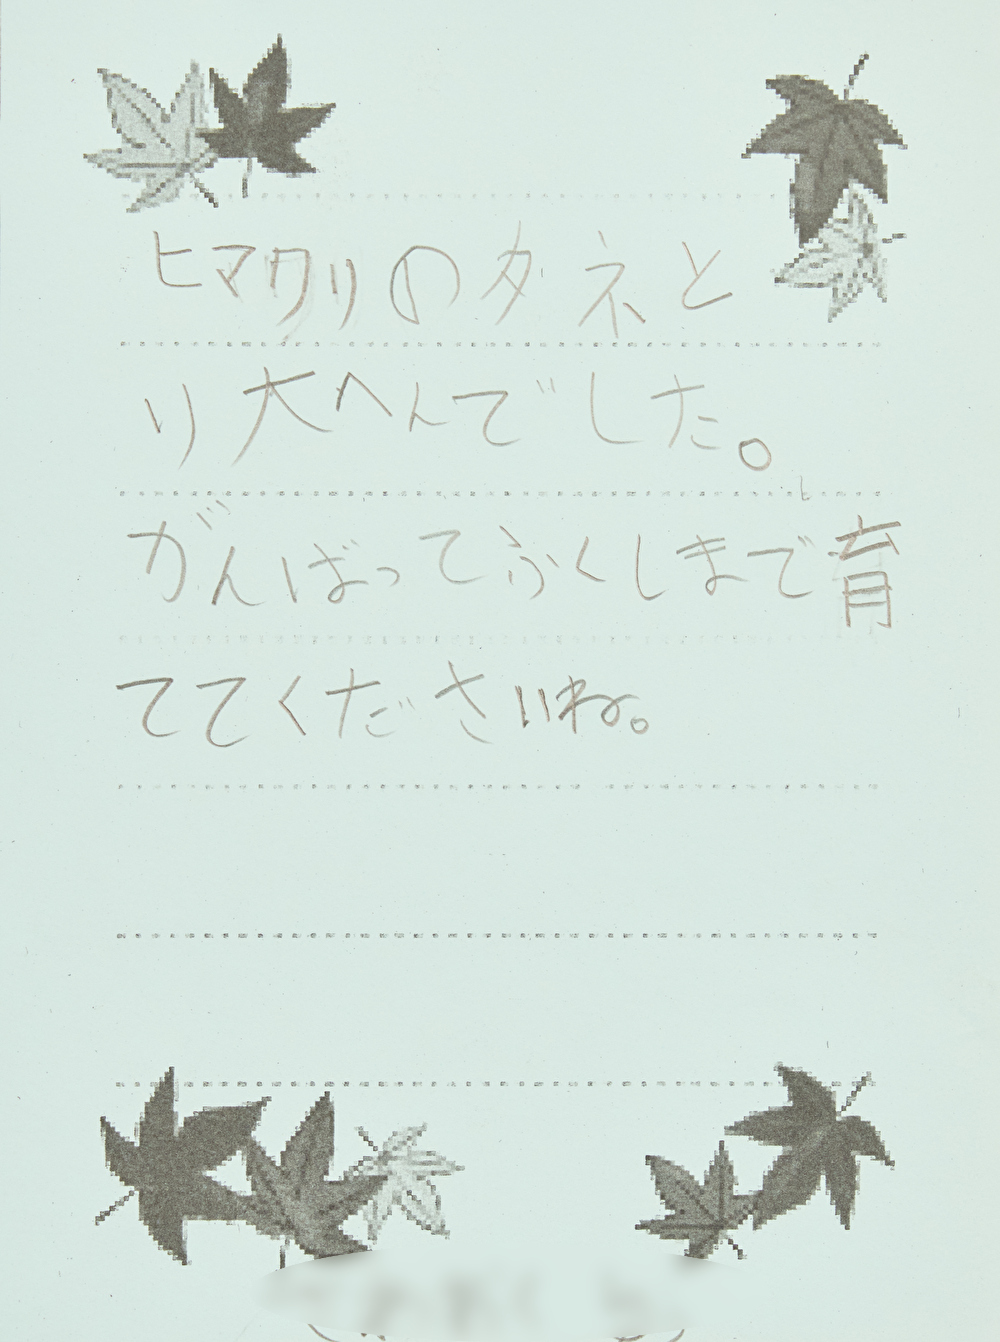 ヒマワリのタネと
り大へんでした。
がんばってふくしまで育
ててくださいね。